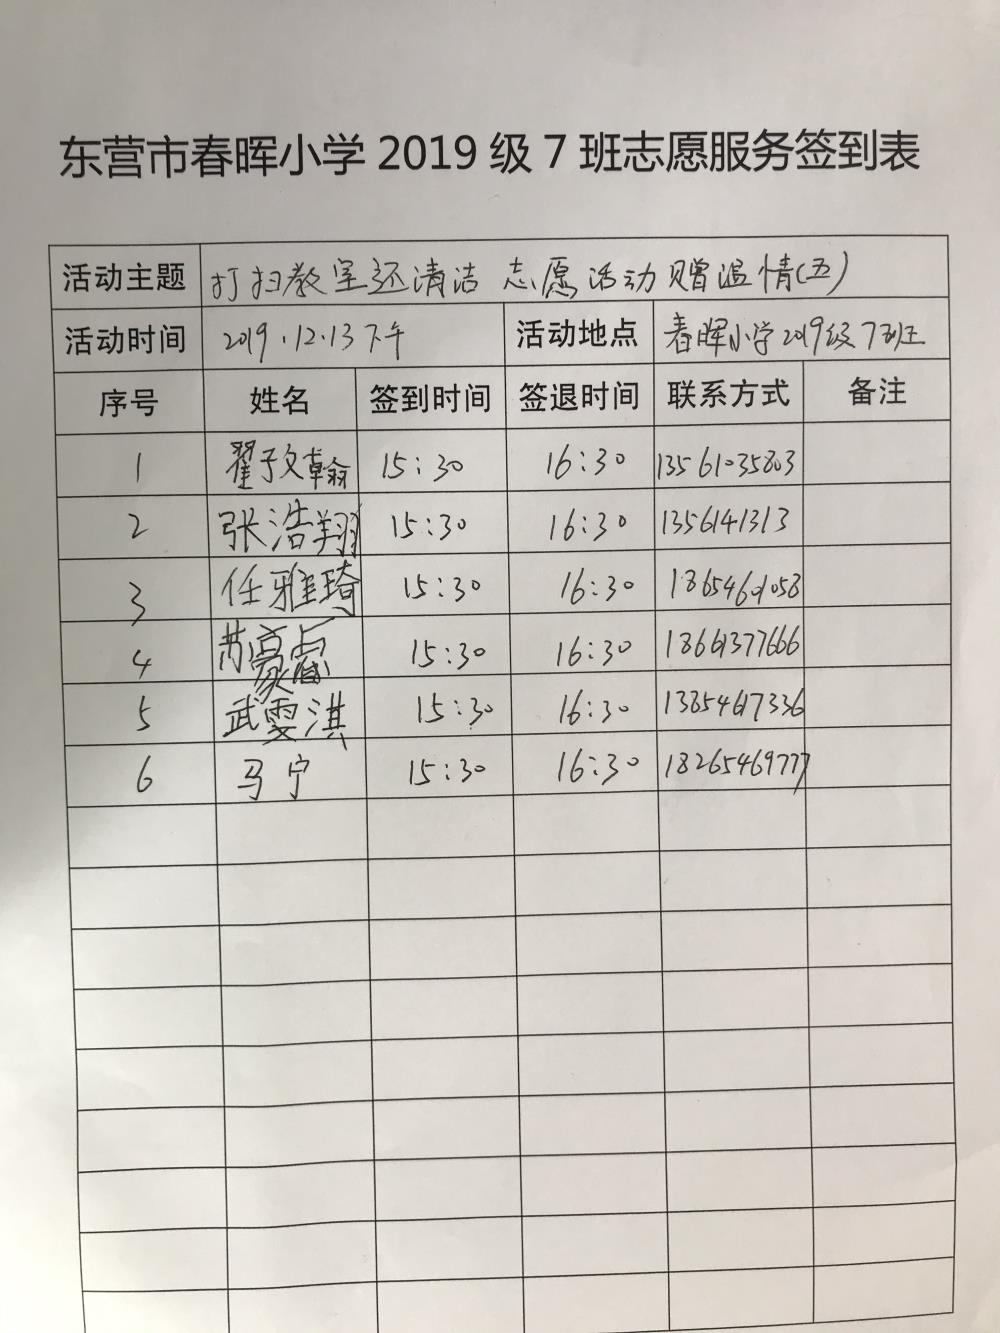 东营市春晖小学 2019 级 7 班志愿服务签到表
活动主题 打扫教室还清洁 志愿活动赠温情(五)
活动时间 2019.12.13下午 活动地点 春晖小学2019级7班
序号 姓名 签到时间 签退时间 联系方式 备注
1 翟子文翰 15:30 16:30 13561035803
2 张浩翔 15:30 16:30 1356141313
3 任雅琦 15:30 16:30 18654601058
4 苏豪睿 15:30 16:30 18661377666
5 武雯淇 15:30 16:30 13854617336
6 马宁 15:30 16:30 18265469777